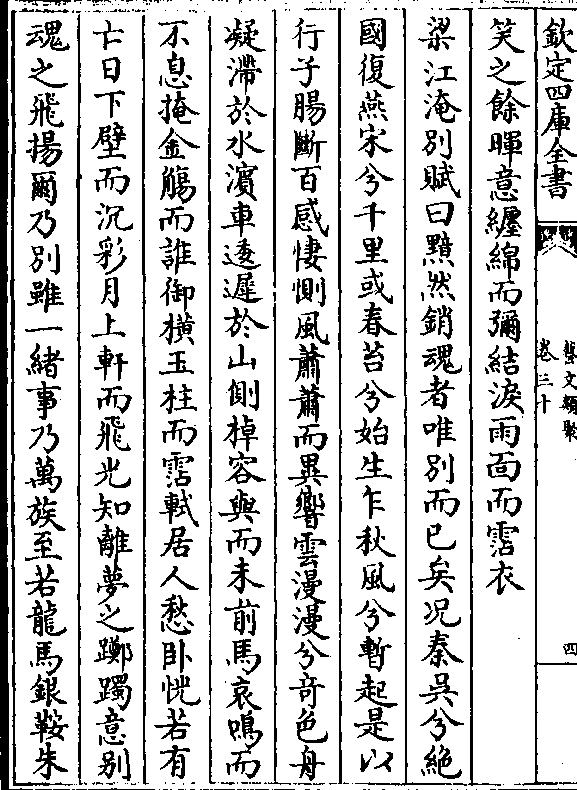 欽定四庫全書
藝文類聚
卷三十
四
笑之餘暉意纏綿而彌結淚雨面而霑衣
梁江淹別賦曰黯然銷魂者唯別而已矣况秦吳兮絶
國復燕宋兮千里或春苔兮始生乍秋風兮暫起是以
行子腸斷百感悽惻風蕭蕭而異響雲漫漫兮竒色舟
凝滯於水濱車逶遲於山側棹容與而未前馬哀鳴而
不息掩金觴而誰御橫玉柱而霑軾居人愁卧怳若有
亡日下壁而沉彩月上軒而飛光知離夢之躑躅意别
魂之飛揚爾乃別雖一緒事乃萬族至若龍馬銀鞍朱